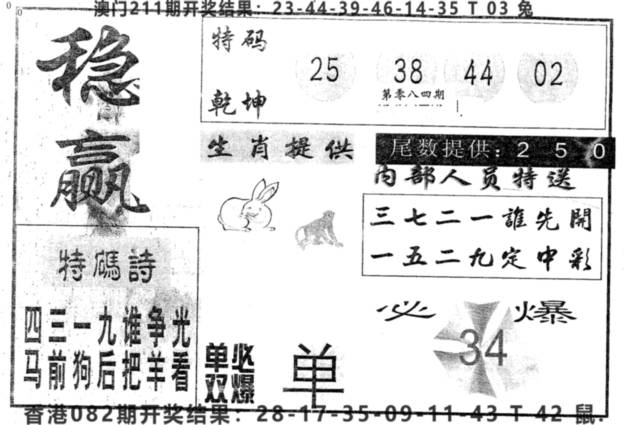 澳门211期开奖结果：23-44-39-46-14-35 T 03 兔
稳赢
特码
乾坤
25 38 44 02
第零八四期
生肖提供
尾数提供：2 5 0
内部人员特送
三七二一誰先開
一五二九定中彩
特碼詩
四三一九谁争光
马前狗后把羊看
必爆
34
单双必爆
单
香港082期开奖结果：28-17-35-09-11-43 T 42 鼠.